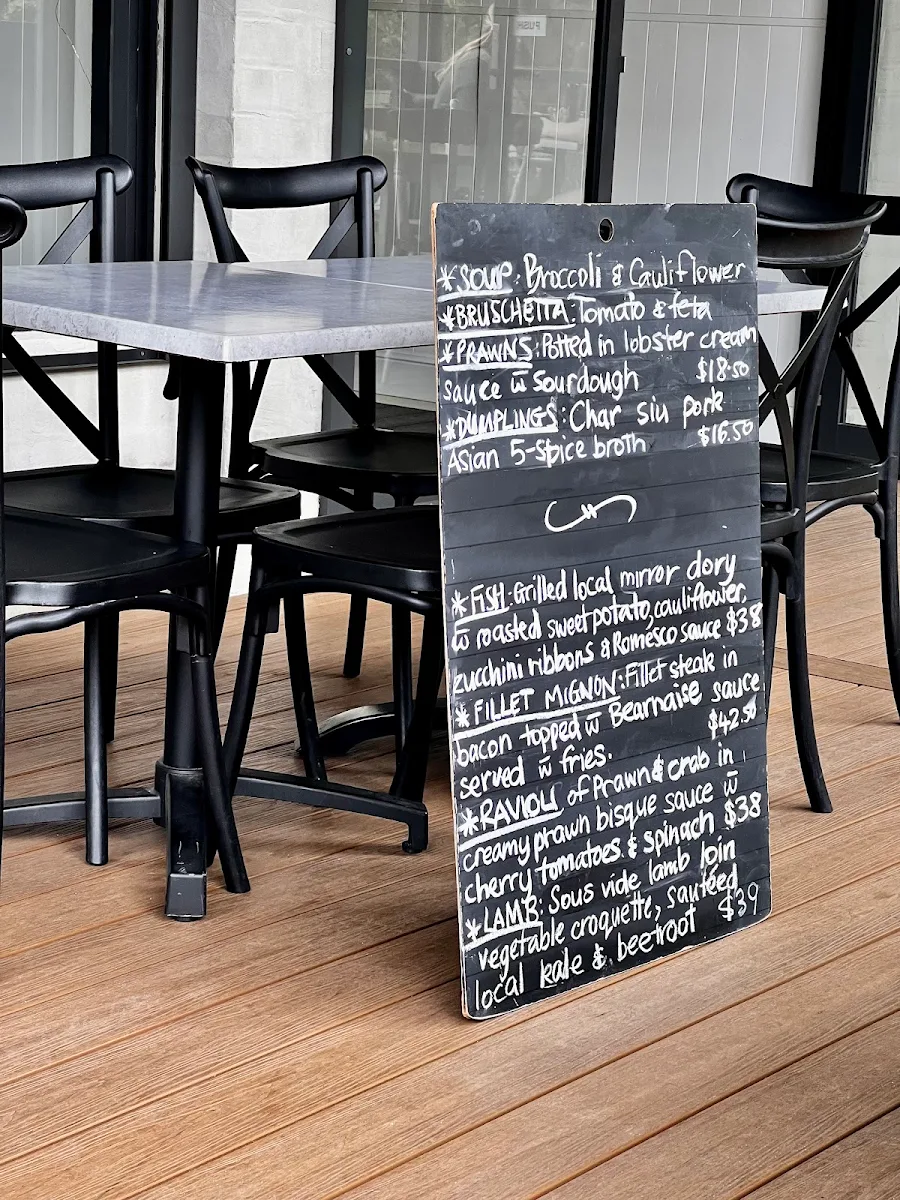 PUSH
*SOUP: Broccoli & Cauliflower
*BRUSCHETTA: Tomato & feta
*PRAWNS: Potted in lobster cream
sauce w̄ Sourdough $18.50
*DUMPLINGS: Char siu pork
Asian 5-spice broth $16.50
*FISH: Grilled local mirror dory
w̄ roasted sweet potato, cauliflower,
zucchini ribbons & Romesco sauce $38
*FILLET MIGNON: Fillet steak in
bacon topped w̄ Bearnaise sauce
served w̄ fries. $42.50
*RAVIOLI of Prawn & crab in
creamy prawn bisque sauce w̄
cherry tomatoes & spinach $38
*LAMB: Sous vide lamb loin
vegetable croquette, sautéed
local kale & beetroot $39